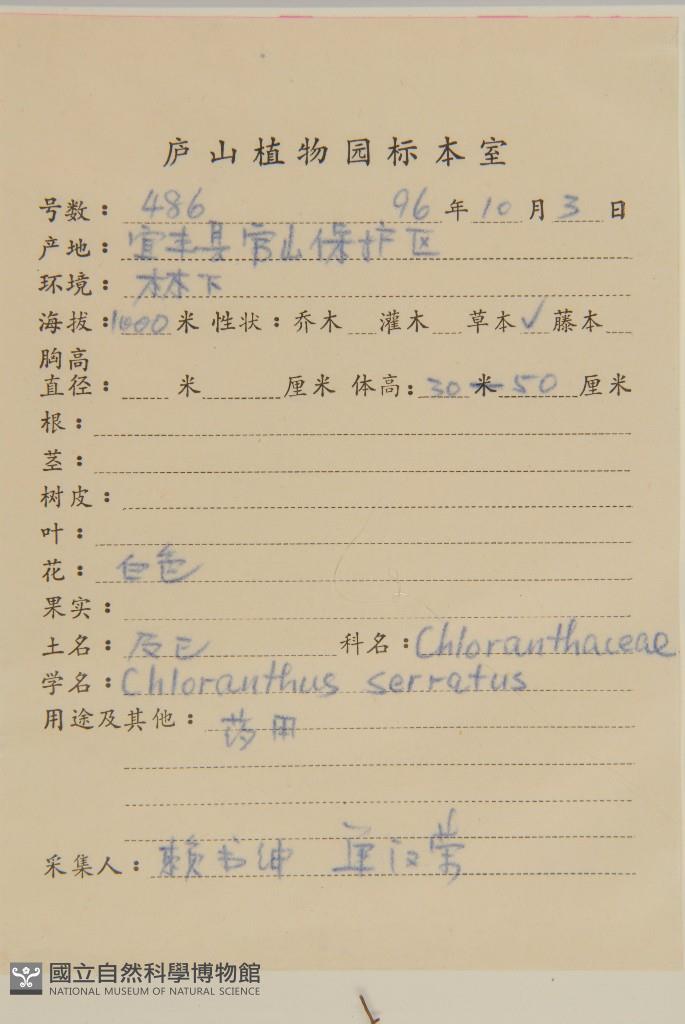 庐山植物园标本室
号数：486 96年10月3日
产地：宜丰县官山保护区
环境：林下
海拔：1000米 性状：乔木 灌木 草本✓藤本
胸高
直径： 米 厘米 体高：30米—50厘米
根：
茎：
树皮：
叶：
花：白色
果实：
土名：及已 科名：Chloranthaceae
学名：Chloranthus serratus
用途及其他：药用
采集人：赖书绅
國立自然科學博物館
NATIONAL MUSEUM OF NATURAL SCIENCE